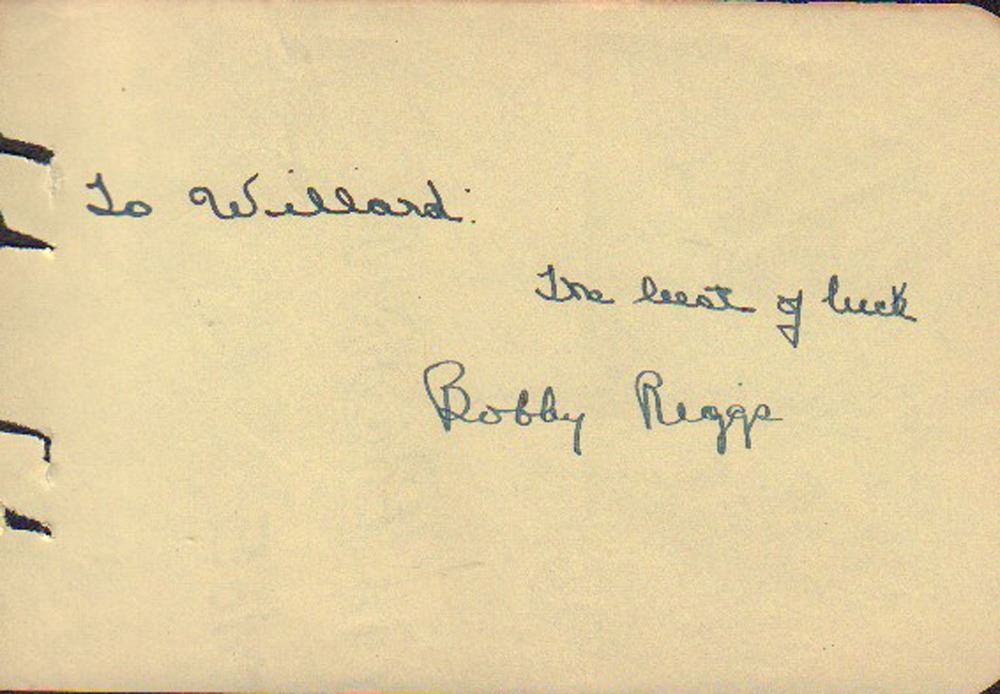 To Willard.
The best of luck
Bobby Riggs